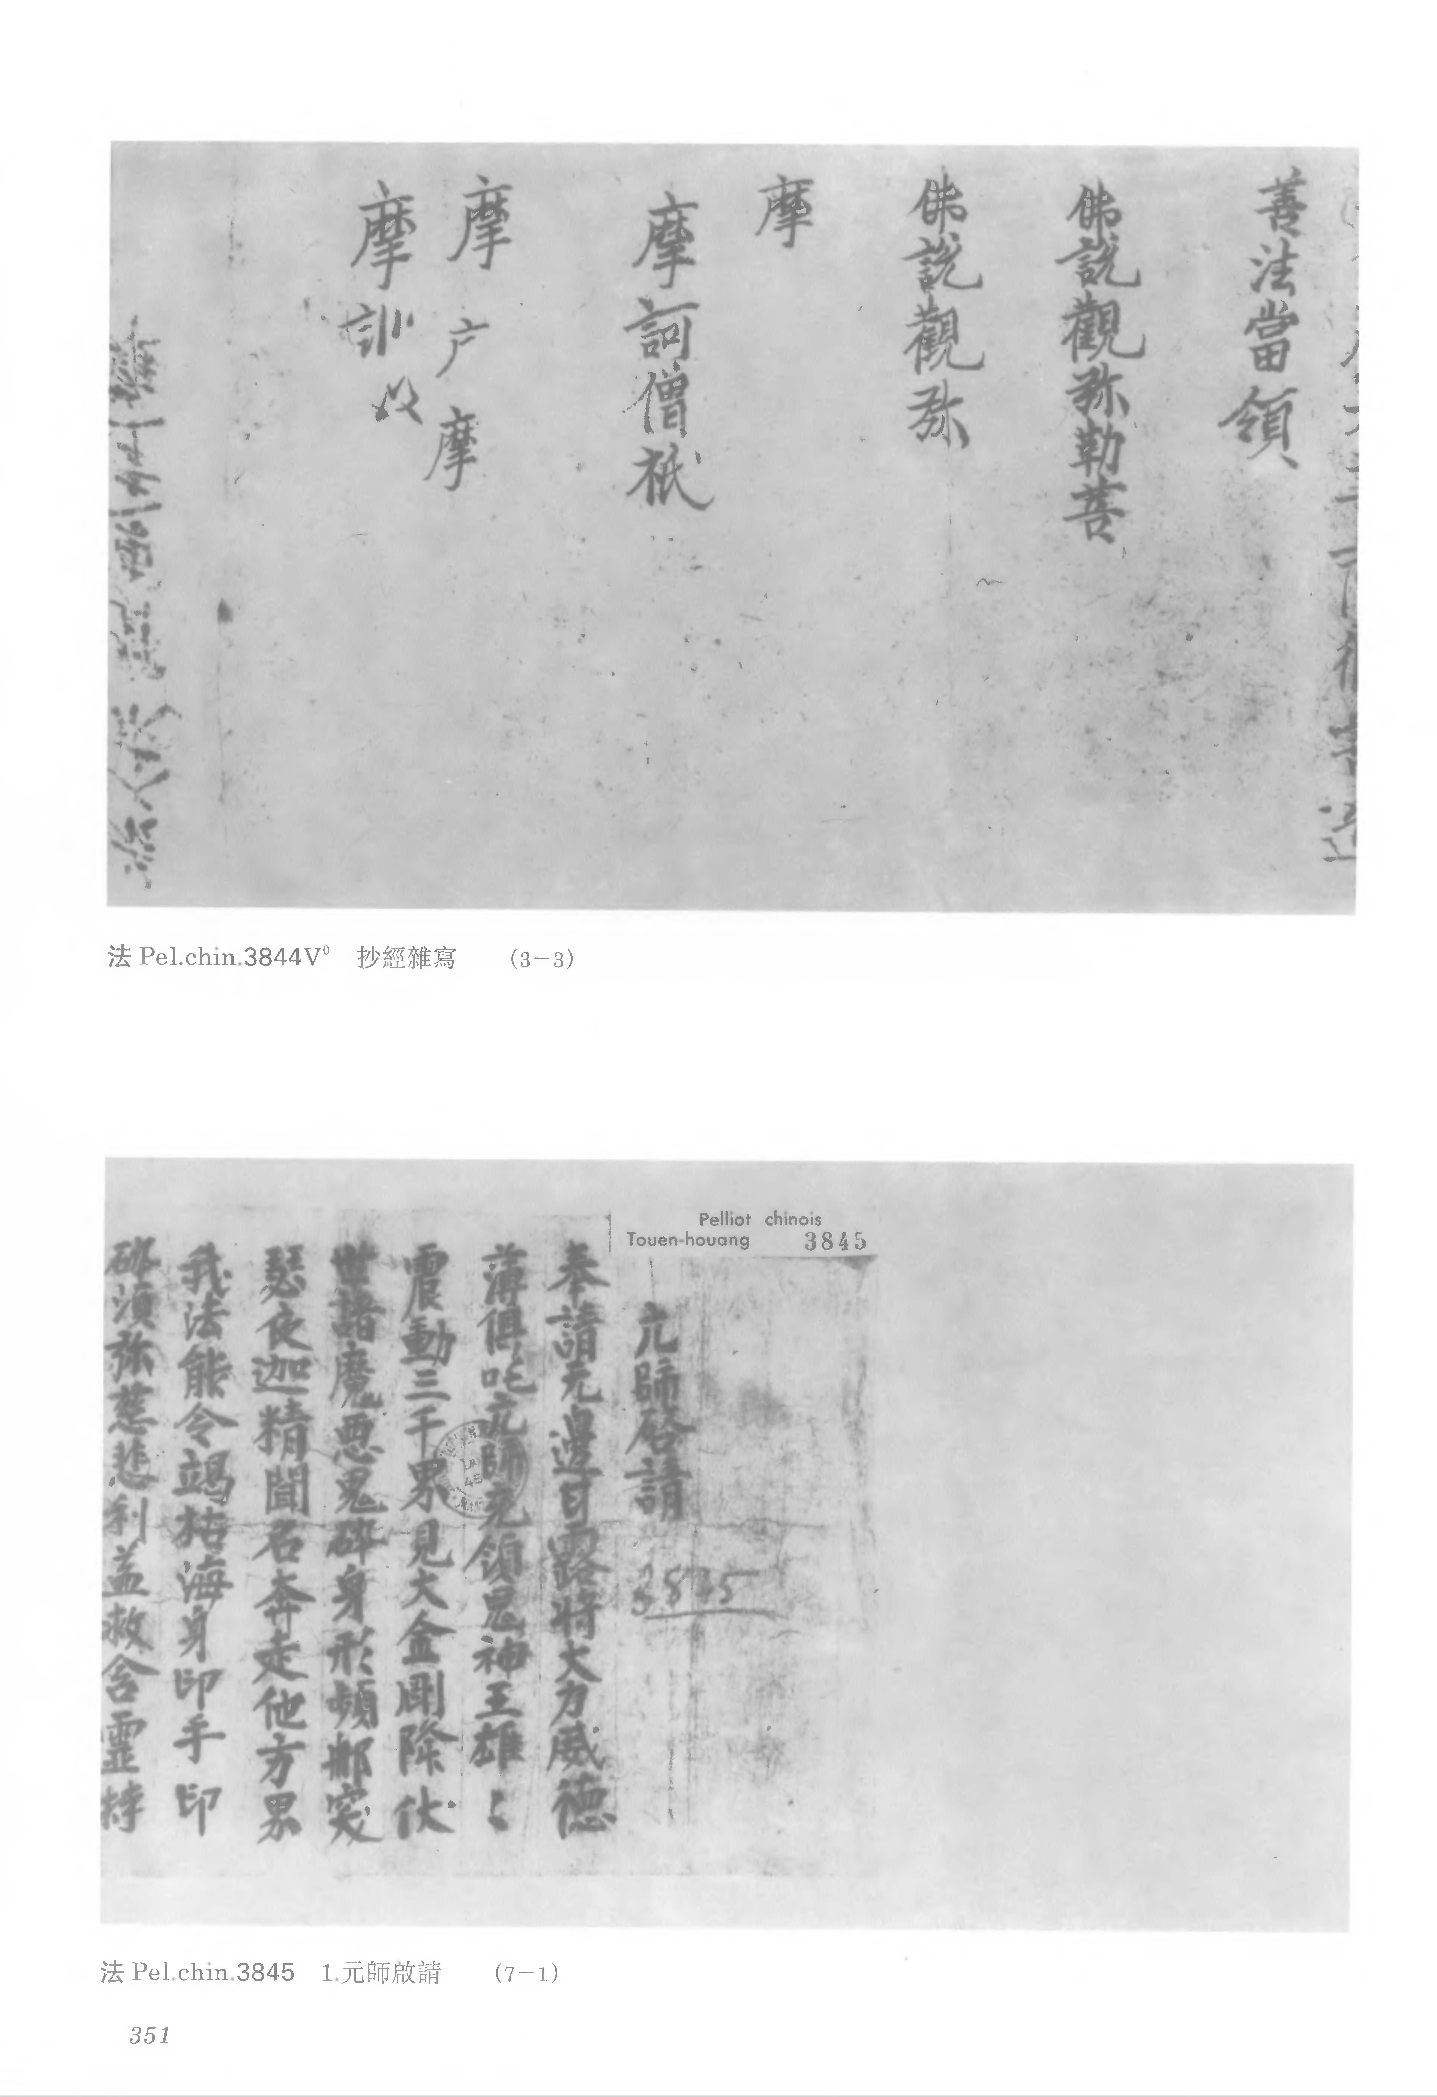 善法當領
佛說觀弥勒菩
佛說觀弥
摩
摩訶僧祇
摩 户 摩
摩 訓
法 Pel.chin.3844V⁰ 抄經雜寫 (3-3)
Pelliot chinois
Touen-houang 3845
元師啓請
3845
奉請无邊甘露將大力威德
薄俱吒元師充領鬼神王雄〻
震動三千界見大金剛降伏
世諸魔惡鬼碎身形頻那
夜迦精聞名奔走他方界
我法能令竭枯海身印手印
須弥慈悲利益救含靈持
法 Pel.chin.3845 1.元師啟請 (7-1)
351